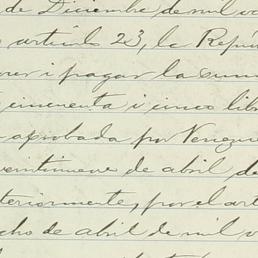 de Diciembre de mil o
artículo 23, la Repú
rer i pagar la sum
cincuenta i cinco libr
aprobada por Venezue
veintinueve de abril, de
teriormente, por el art
cho de abril de mil o